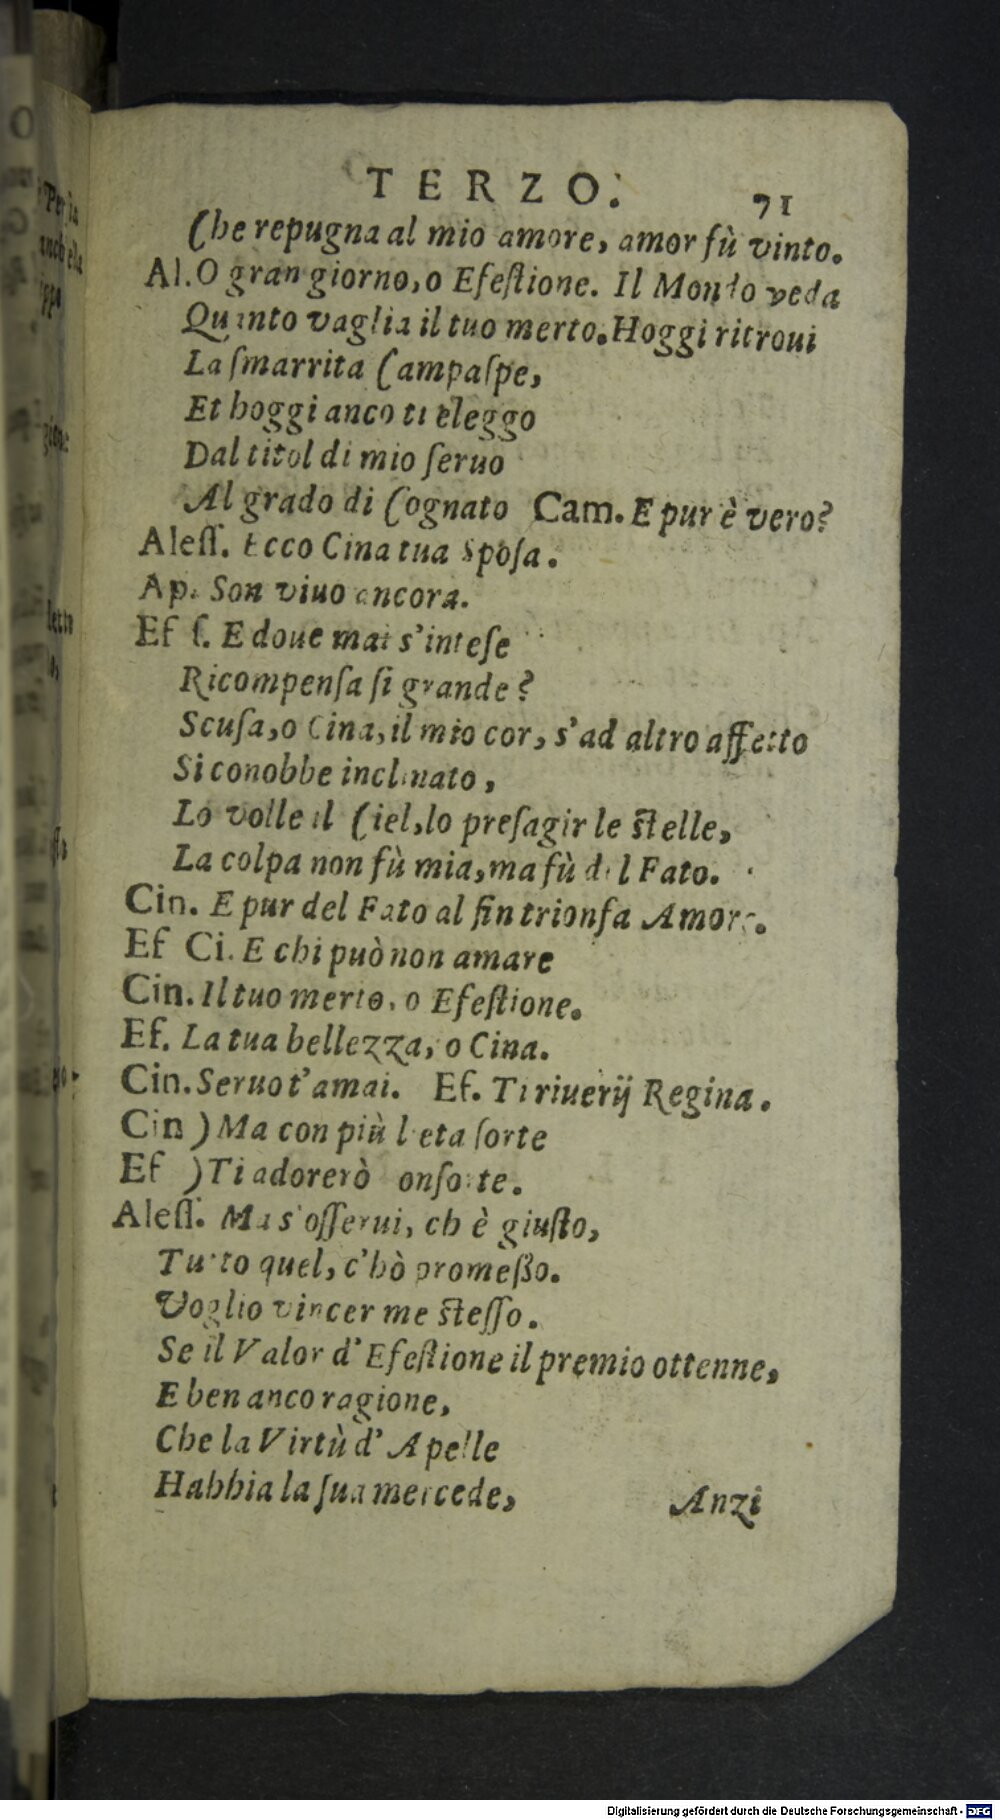 TERZO. 71
Che repugna al mio amore, amor fù vinto.
Al. O gran giorno, o Efeſtione. Il Mondo veda
Quanto vaglia il tuo merto. Hoggi ritroui
La ſmarrita Campaſpe,
Et hoggi anco ti eleggo
Dal titol di mio ſeruo
Al grado di Cognato Cam. E pur è vero?
Aleſſ. Ecco Cina tua Spoſa.
Ap. Son viuo ancora.
Ef ſ. E doue mai s'inteſe
Ricompenſa ſi grande?
Scuſa, o Cina, il mio cor, s'ad altro affetto
Si conobbe inclinato,
Lo volle il Ciel, lo preſagir le ſtelle,
La colpa non fù mia, ma fù del Fato.
Cin. E pur del Fato al fin trionfa Amore.
Ef Ci. E chi può non amare
Cin. Il tuo merto, o Efeſtione.
Ef. La tua bellezza, o Cina.
Cin. Seruo t'amai. Ef. Ti riuerij Regina.
Cin ) Ma con più lieta ſorte
Ef ) Ti adorerò onſorte.
Aleſſ. Ma s'oſſerui, ch è giuſto,
Tutto quel, c'hò promeßo.
Voglio vincer me ſteſſo.
Se il Valor d'Efeſtione il premio ottenne,
E ben anco ragione,
Che la Virtù d'Apelle
Habbia la ſua mercede,
Anzi
Per la
anch ella
letto
Digitalisierung gefördert durch die Deutsche Forschungsgemeinschaft - DFG